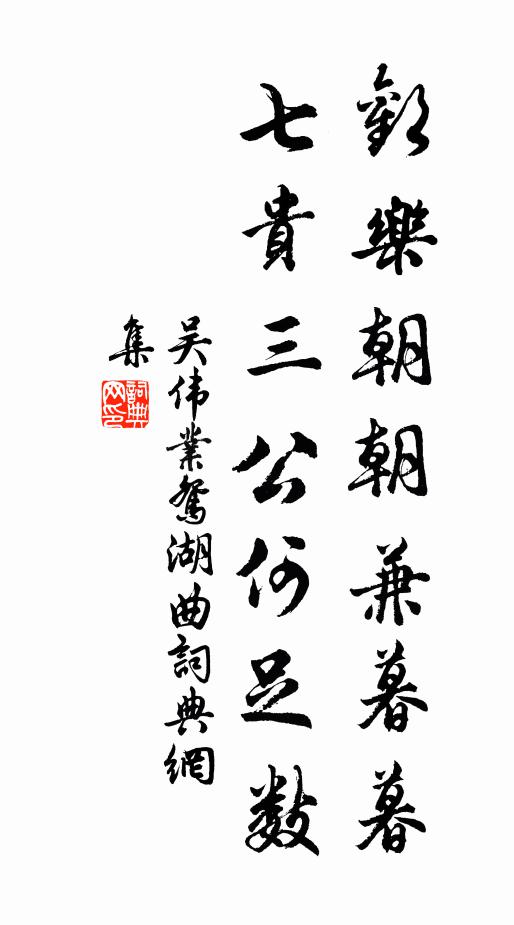 歡樂朝朝兼暮暮
七貴三公何足數
吴伟業鴛湖曲詞典網
集
詞典网印